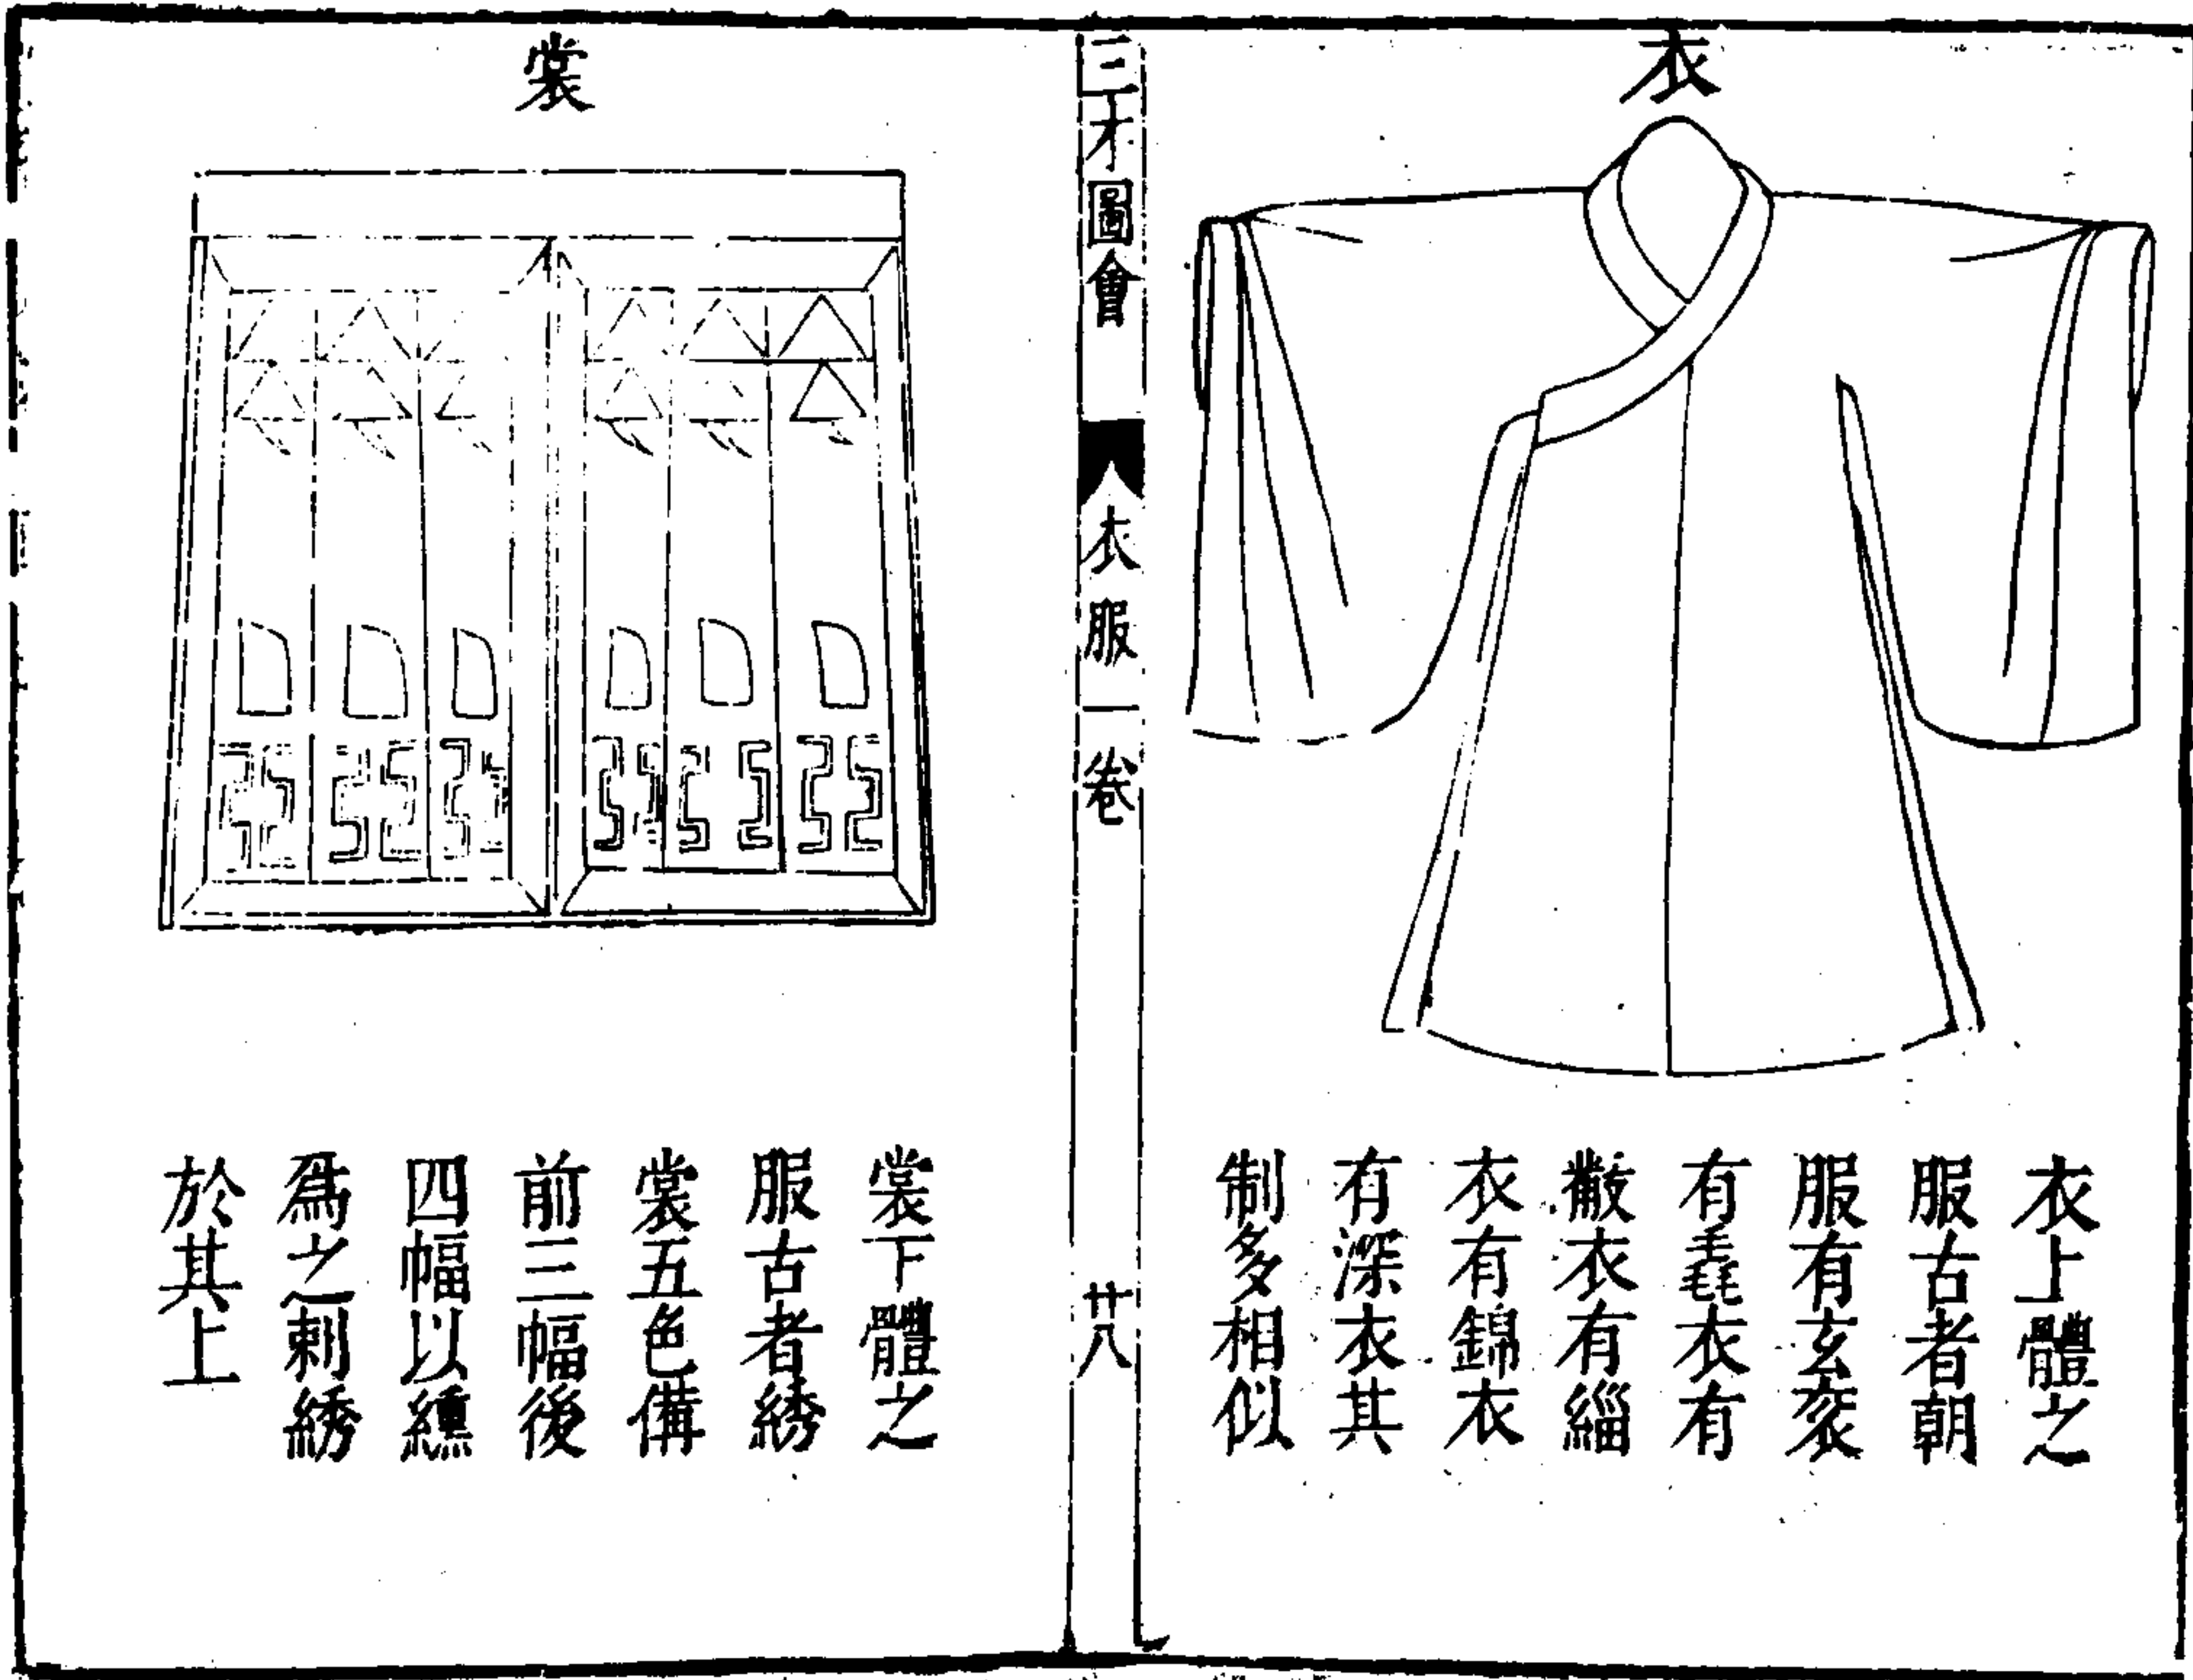 衣
衣上體之
服古者朝
服有玄衮
有毳衣有
黻衣有緇
衣有錦衣
有深衣其
制多相似
三才圖會
衣服一卷
廿八
裳
裳下體之
服古者綉
裳五色備
前三幅後
四幅以纁
爲之刺綉
於其上